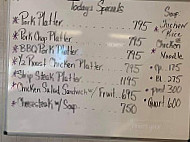 Todays Specials
*Pork Platter 795
*Pork Chop Platter 795
*BBQ Pork Platter 795
*1/2 Roast Chicken Platter 795
*Strip Steak Platter 1195
*Chicken Salad Sandwich w/ Fruit 695
*Cheesesteak w/ Soup 750
Soup
*Chicken
& Rice
Chicken
Noodle
Cp. 175
Bl. 275
pint 300
Quart 600